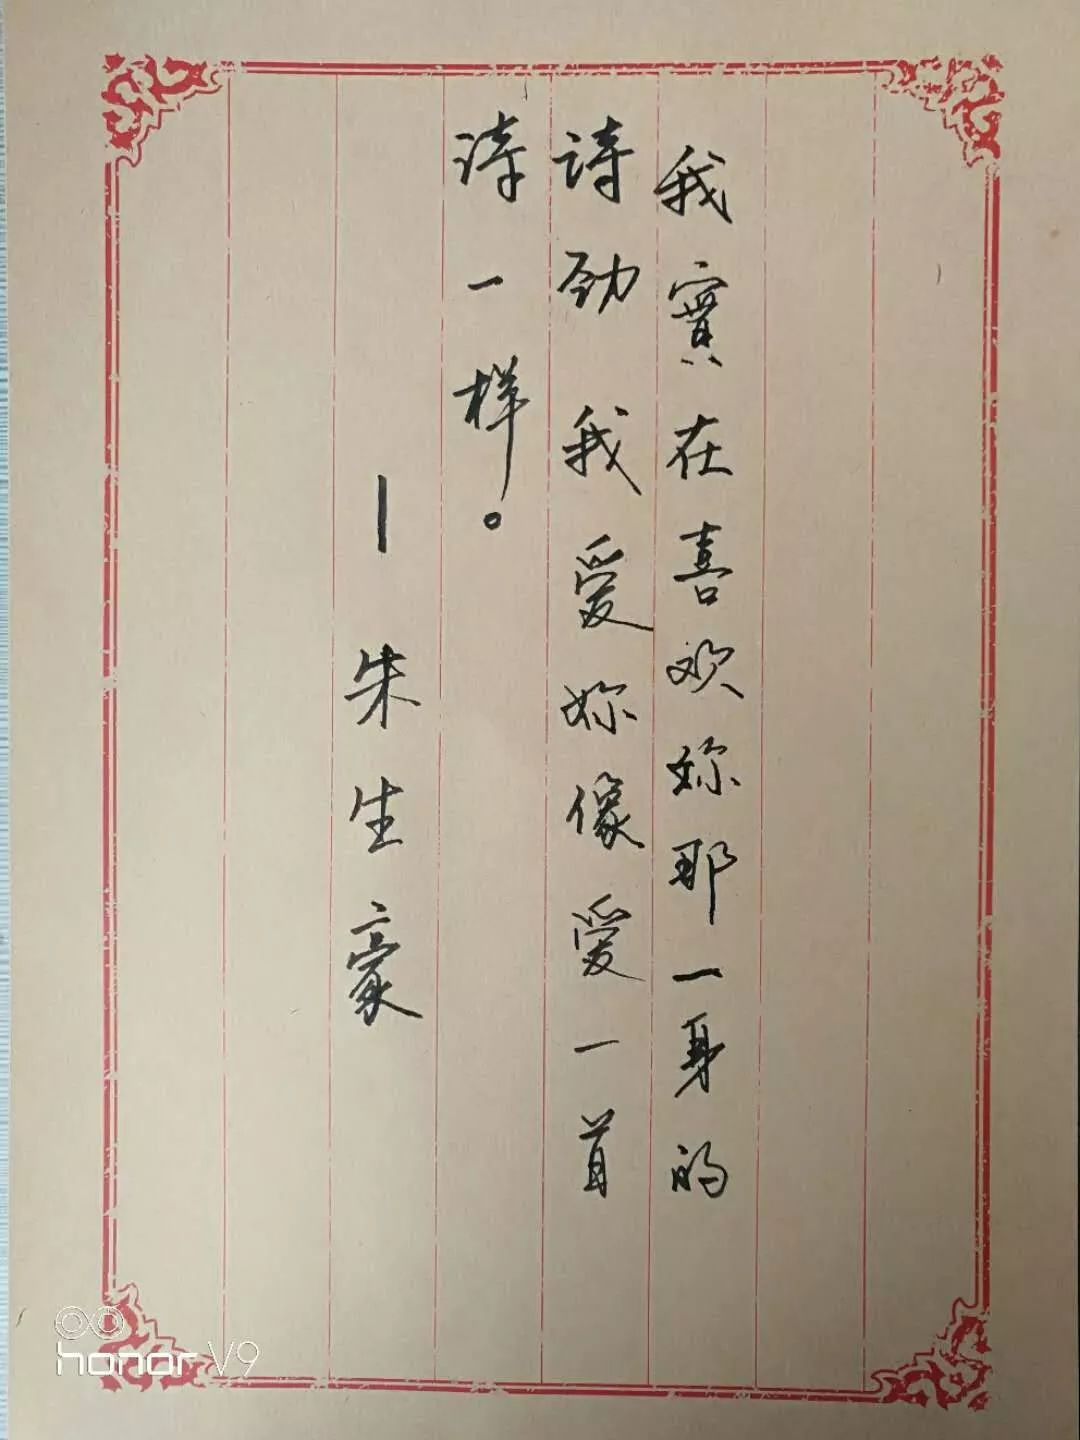 我實在喜欢妳那一身的
诗劲我爱妳像爱一首
诗一样。
—朱生豪
honor V9